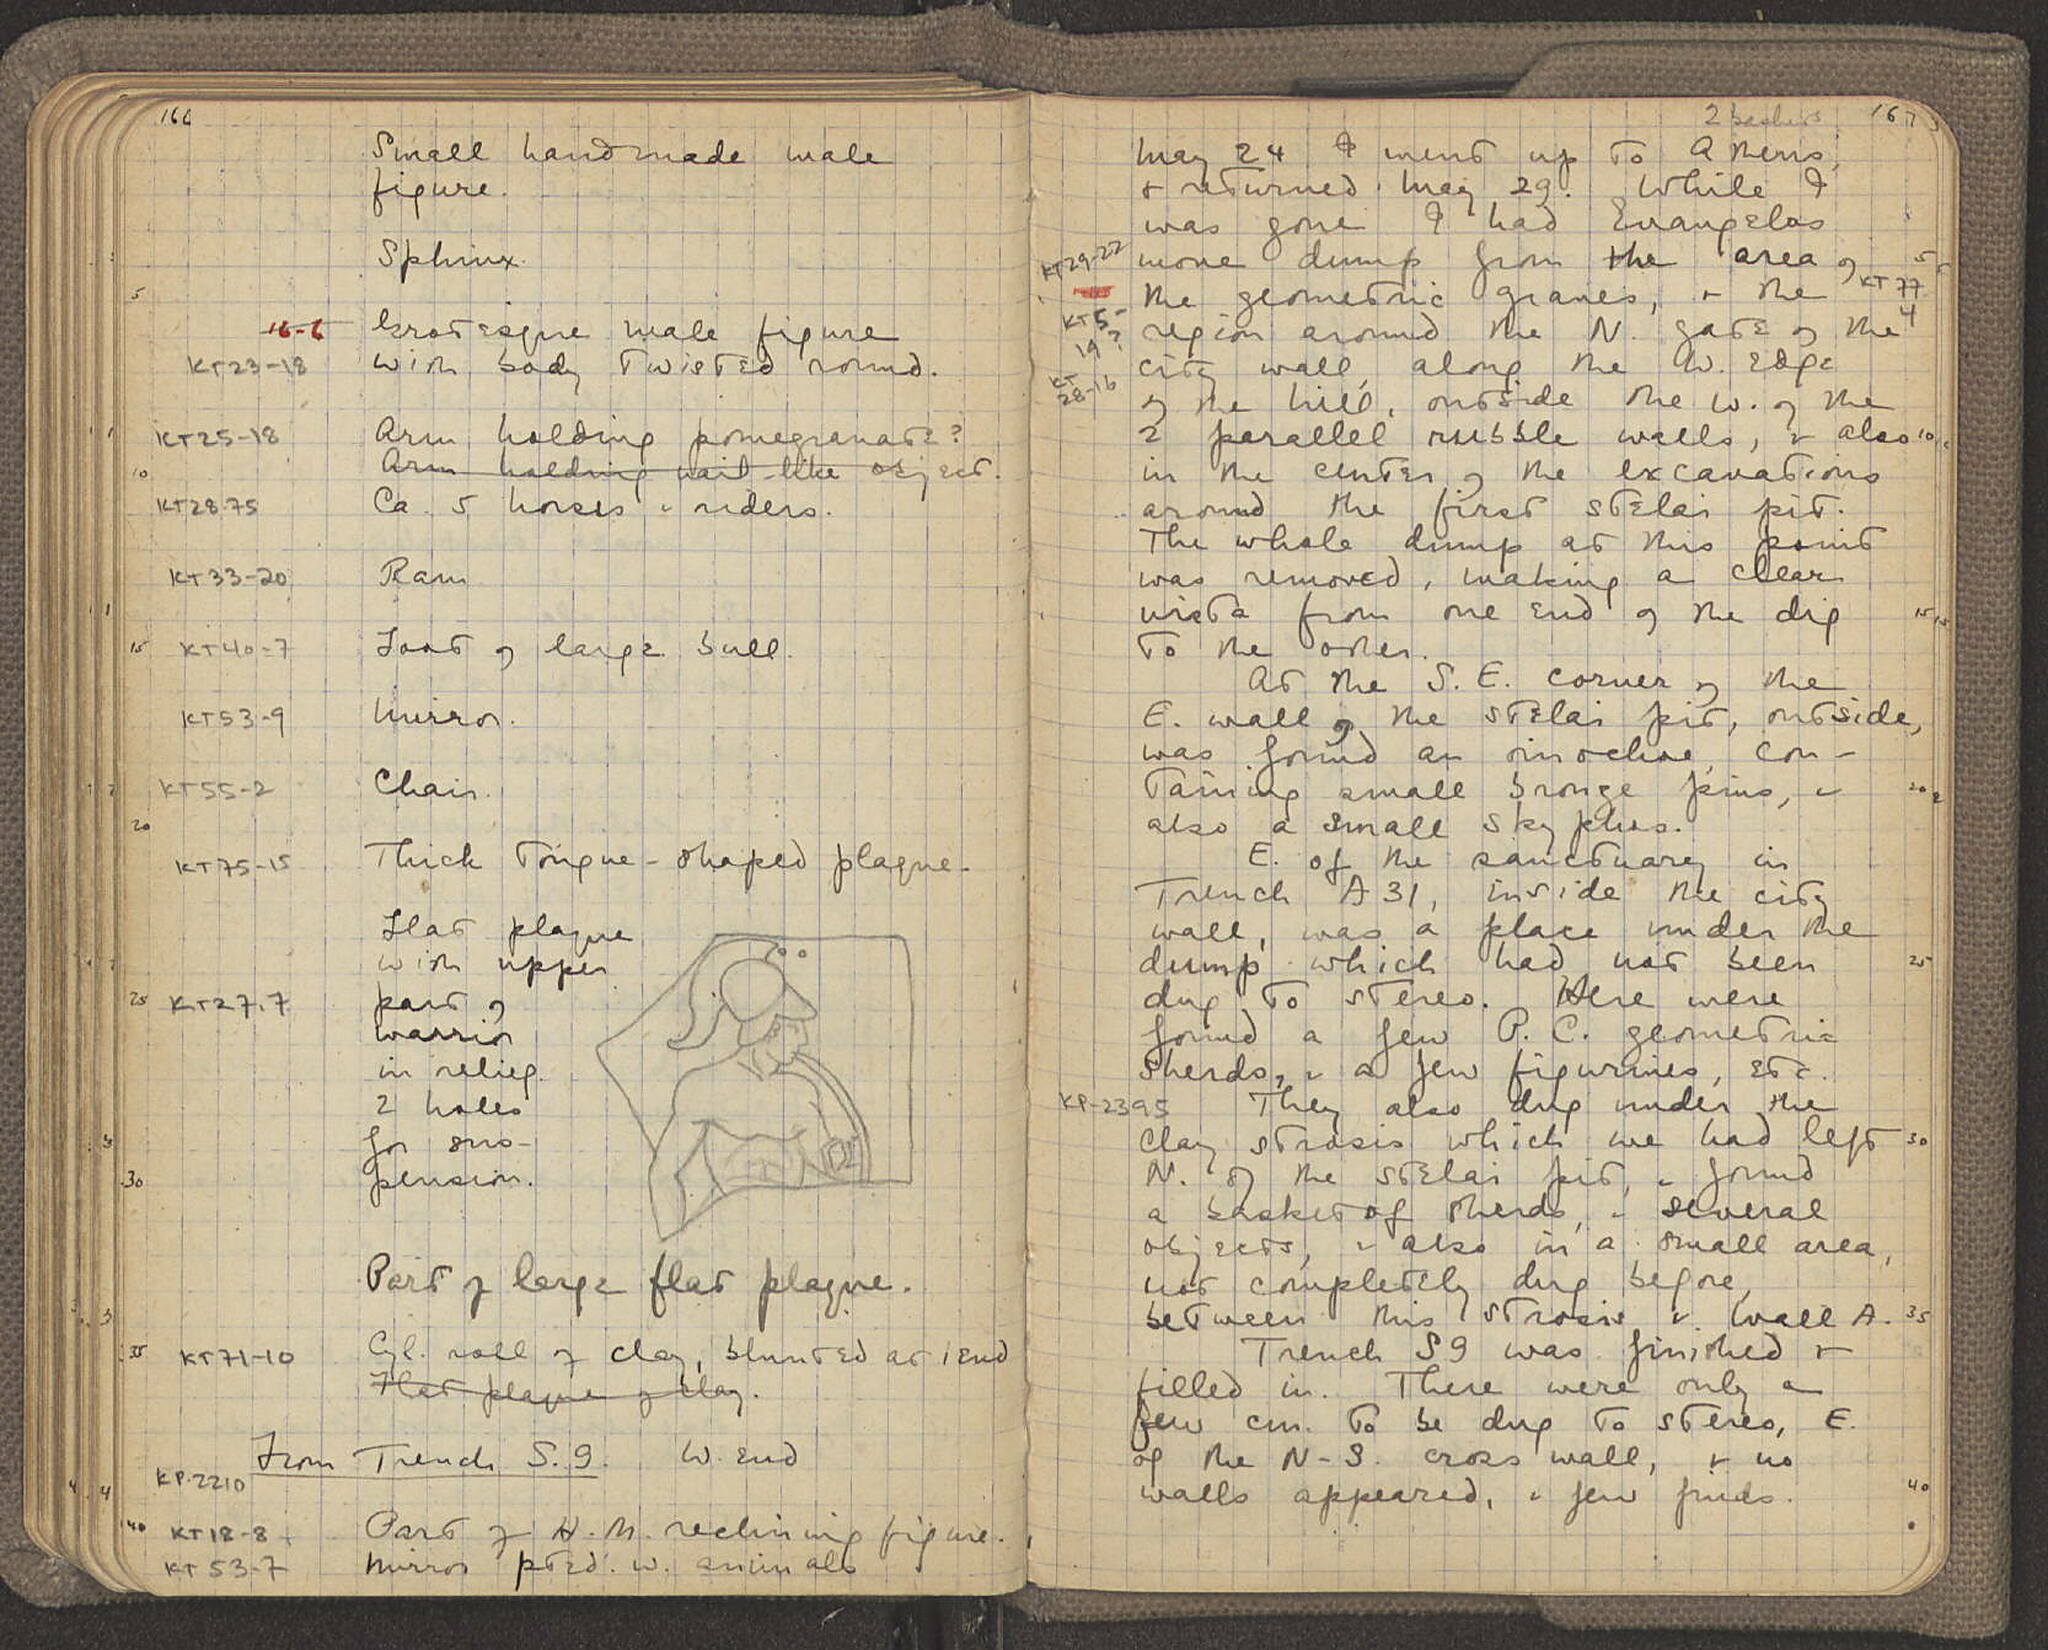 166
Small handmade male
figure.
Sphinx.
5
16-6 Grotesque male figure
KT23-18 with body twisted round.
KT25-18 Arm holding pomegranate?
10 Arm holding nail-like object.
KT28.75 Ca. 5 horses & riders.
KT33-20 Ram
15 KT40-7 Foot of large bull.
KT53-9 Mirror.
KT55-2 Chair.
20
KT75-15 Thick tongue-shaped plaque.
Flat plaque
with upper
25 KT27.7 part of
warrior
in relief.
2 holes
for sus-
30 pension.
Part of large flat plaque.
35 KT71-10 Cyl. roll of clay, blunted at 1 end
Flat plaque of clay.
From Trench S.9. W. End
KP.2210
40 KT18-8 Part of H.M. reclining figure.
KT53-7 Mirror pted. w. animals
2 baskets 167
May 24 I went up to Athens,
& returned May 29. While I
was gone I had Evangelos
KT29-22 move dump from the area of 5
the geometric graves, & the KT77
KT5- region around the N. gate of the 4
19? city wall, along the W. edge
KT
28-16 of the hill, outside the W. of the
2 parallel rubble walls, & also 10
in the center of the excavations
around the first stelai pit.
The whole dump at this point
was removed, making a clear
vista from one end of the dig 15
to the other.
At the S.E. corner of the
E. wall of the stelai pit, outside,
was found an oinochoe, con-
taining small bronze pins, & 20
also a small skyphos.
E. of the sanctuary in
Trench A31, inside the city
wall, was a place under the
dump which had not been 25
dug to stereo. Here were
found a few P.C. geometric
sherds, & a few figurines, etc.
KP-2395 They also dug under the
clay strosis which we had left 30
N. of the stelai pit, & found
a basket of sherds, & several
objects, & also in a small area,
not completely dug before,
between this strosis & Wall A. 35
Trench S9 was finished &
filled in. There were only a
few cm. to be dug to stereo, E.
of the N-S. cross wall, & no
walls appeared, & few finds. 40